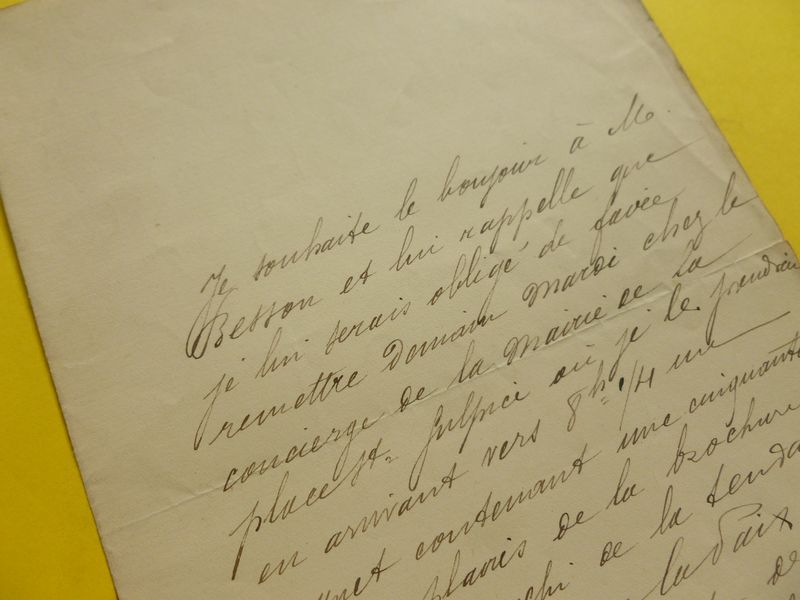 Je souhaite le bonjour à M.
Besson et lui rappelle que
je lui serais obligé de faire
remettre demain mardi chez le
concierge de la Mairie de la
place St. Sulpice où je le prendrai
en arrivant vers 8h 1/4 un
contenant une cinquantaine
de la brochure
de la
la Paix
de